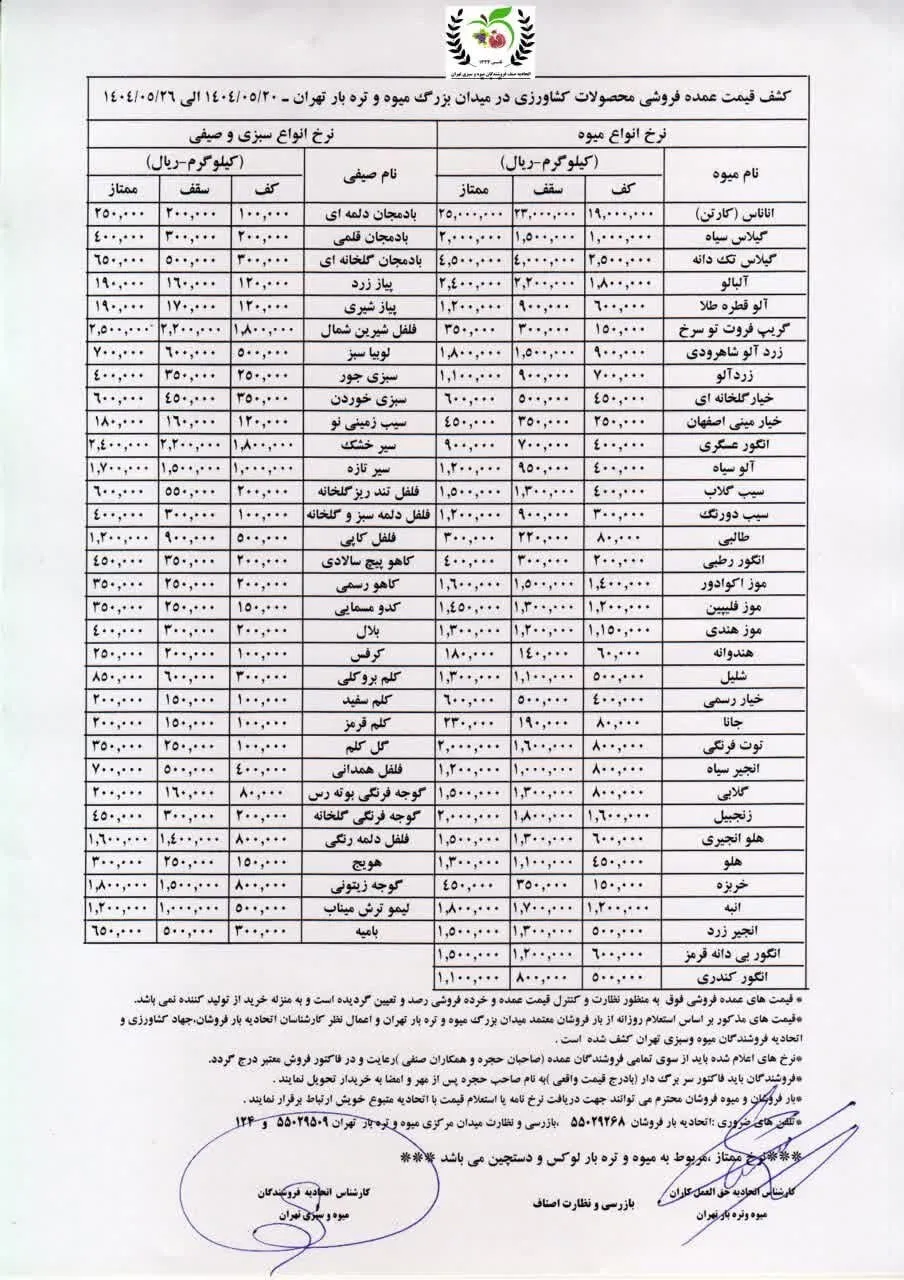 تاسیس ۱۳۲۴
اتحادیه صنف فروشندگان میوه و سبزی تهران
کشف قیمت عمده فروشی محصولات کشاورزی در میدان بزرگ میوه و تره بار تهران - ۱۴۰۴/۰۵/۲۰ الی ۱۴۰۴/۰۵/۲۶
نرخ انواع میوه نرخ انواع سبزی و صیفی
نام میوه (کیلوگرم-ریال) نام صیفی (کیلوگرم-ریال)
کف سقف ممتاز کف سقف ممتاز
اناناس (کارتن) ۱۹,۰۰۰,۰۰۰ ۲۳,۰۰۰,۰۰۰ ۲۵,۰۰۰,۰۰۰ بادمجان دلمه ای ۱۰۰,۰۰۰ ۲۰۰,۰۰۰ ۲۵۰,۰۰۰
گیلاس سیاه ۱,۰۰۰,۰۰۰ ۱,۵۰۰,۰۰۰ ۲,۰۰۰,۰۰۰ بادمجان قلمی ۲۰۰,۰۰۰ ۳۰۰,۰۰۰ ۴۰۰,۰۰۰
گیلاس تک دانه ۲,۵۰۰,۰۰۰ ۴,۰۰۰,۰۰۰ ۴,۵۰۰,۰۰۰ بادمجان گلخانه ای ۳۰۰,۰۰۰ ۵۰۰,۰۰۰ ۶۵۰,۰۰۰
آلبالو ۱,۸۰۰,۰۰۰ ۲,۲۰۰,۰۰۰ ۲,۴۰۰,۰۰۰ پیاز زرد ۱۲۰,۰۰۰ ۱۶۰,۰۰۰ ۱۹۰,۰۰۰
آلو قطره طلا ۶۰۰,۰۰۰ ۹۰۰,۰۰۰ ۱,۲۰۰,۰۰۰ پیاز شیری ۱۲۰,۰۰۰ ۱۷۰,۰۰۰ ۱۹۰,۰۰۰
گریپ فروت تو سرخ ۱۵۰,۰۰۰ ۳۰۰,۰۰۰ ۳۵۰,۰۰۰ فلفل شیرین شمال ۱,۸۰۰,۰۰۰ ۲,۲۰۰,۰۰۰ ۲,۵۰۰,۰۰۰
زرد آلو شاهرودی ۹۰۰,۰۰۰ ۱,۵۰۰,۰۰۰ ۱,۸۰۰,۰۰۰ لوبیا سبز ۵۰۰,۰۰۰ ۶۰۰,۰۰۰ ۷۰۰,۰۰۰
زردآلو ۷۰۰,۰۰۰ ۹۰۰,۰۰۰ ۱,۱۰۰,۰۰۰ سبزی جور ۲۵۰,۰۰۰ ۳۵۰,۰۰۰ ۴۰۰,۰۰۰
خیارگلخانه ای ۴۵۰,۰۰۰ ۵۰۰,۰۰۰ ۶۰۰,۰۰۰ سبزی خوردن ۳۵۰,۰۰۰ ۴۵۰,۰۰۰ ۶۰۰,۰۰۰
خیار مینی اصفهان ۲۵۰,۰۰۰ ۳۵۰,۰۰۰ ۴۵۰,۰۰۰ سیب زمینی نو ۱۲۰,۰۰۰ ۱۶۰,۰۰۰ ۱۸۰,۰۰۰
انگور عسگری ۴۰۰,۰۰۰ ۷۰۰,۰۰۰ ۹۰۰,۰۰۰ سیر خشک ۱,۸۰۰,۰۰۰ ۲,۲۰۰,۰۰۰ ۲,۴۰۰,۰۰۰
آلو سیاه ۴۰۰,۰۰۰ ۹۵۰,۰۰۰ ۱,۲۰۰,۰۰۰ سیر تازه ۱,۰۰۰,۰۰۰ ۱,۵۰۰,۰۰۰ ۱,۷۰۰,۰۰۰
سیب گلاب ۴۰۰,۰۰۰ ۱,۳۰۰,۰۰۰ ۱,۵۰۰,۰۰۰ فلفل تند ریزگلخانه ۲۰۰,۰۰۰ ۵۵۰,۰۰۰ ۶۰۰,۰۰۰
سیب دورنگ ۳۰۰,۰۰۰ ۹۰۰,۰۰۰ ۱,۲۰۰,۰۰۰ فلفل دلمه سبز و گلخانه ۱۰۰,۰۰۰ ۳۰۰,۰۰۰ ۴۰۰,۰۰۰
طالبی ۸۰,۰۰۰ ۲۲۰,۰۰۰ ۳۰۰,۰۰۰ فلفل کاپی ۵۰۰,۰۰۰ ۹۰۰,۰۰۰ ۱,۲۰۰,۰۰۰
انگور رطبی ۲۰۰,۰۰۰ ۳۰۰,۰۰۰ ۴۰۰,۰۰۰ کاهو پیچ سالادی ۲۰۰,۰۰۰ ۳۵۰,۰۰۰ ۴۵۰,۰۰۰
موز اکوادور ۱,۴۰۰,۰۰۰ ۱,۵۰۰,۰۰۰ ۱,۶۰۰,۰۰۰ کاهو رسمی ۲۰۰,۰۰۰ ۲۵۰,۰۰۰ ۳۵۰,۰۰۰
موز فلیپین ۱,۲۰۰,۰۰۰ ۱,۳۰۰,۰۰۰ ۱,۴۵۰,۰۰۰ کدو مسمایی ۱۵۰,۰۰۰ ۲۵۰,۰۰۰ ۳۵۰,۰۰۰
موز هندی ۱,۱۵۰,۰۰۰ ۱,۲۰۰,۰۰۰ ۱,۳۰۰,۰۰۰ بلال ۲۰۰,۰۰۰ ۳۰۰,۰۰۰ ۴۰۰,۰۰۰
هندوانه ۶۰,۰۰۰ ۱۴۰,۰۰۰ ۱۸۰,۰۰۰ کرفس ۱۰۰,۰۰۰ ۲۰۰,۰۰۰ ۲۵۰,۰۰۰
شلیل ۵۰۰,۰۰۰ ۱,۱۰۰,۰۰۰ ۱,۳۰۰,۰۰۰ کلم بروکلی ۳۰۰,۰۰۰ ۶۰۰,۰۰۰ ۸۵۰,۰۰۰
خیار رسمی ۴۰۰,۰۰۰ ۵۰۰,۰۰۰ ۶۰۰,۰۰۰ کلم سفید ۱۰۰,۰۰۰ ۱۵۰,۰۰۰ ۲۰۰,۰۰۰
جانا ۸۰,۰۰۰ ۱۹۰,۰۰۰ ۲۳۰,۰۰۰ کلم قرمز ۱۰۰,۰۰۰ ۱۵۰,۰۰۰ ۲۰۰,۰۰۰
توت فرنگی ۸۰۰,۰۰۰ ۱,۶۰۰,۰۰۰ ۲,۰۰۰,۰۰۰ گل کلم ۱۰۰,۰۰۰ ۲۵۰,۰۰۰ ۳۵۰,۰۰۰
انجیر سیاه ۸۰۰,۰۰۰ ۱,۰۰۰,۰۰۰ ۱,۲۰۰,۰۰۰ فلفل همدانی ۴۰۰,۰۰۰ ۵۰۰,۰۰۰ ۷۰۰,۰۰۰
گلابی ۸۰۰,۰۰۰ ۱,۳۰۰,۰۰۰ ۱,۵۰۰,۰۰۰ گوجه فرنگی بوته رس ۸۰,۰۰۰ ۱۶۰,۰۰۰ ۲۰۰,۰۰۰
زنجبیل ۱,۶۰۰,۰۰۰ ۱,۸۰۰,۰۰۰ ۲,۰۰۰,۰۰۰ گوجه فرنگی گلخانه ۲۰۰,۰۰۰ ۳۰۰,۰۰۰ ۴۵۰,۰۰۰
هلو انجیری ۶۰۰,۰۰۰ ۱,۳۰۰,۰۰۰ ۱,۵۰۰,۰۰۰ فلفل دلمه رنگی ۸۰۰,۰۰۰ ۱,۴۰۰,۰۰۰ ۱,۶۰۰,۰۰۰
هلو ۴۵۰,۰۰۰ ۱,۱۰۰,۰۰۰ ۱,۳۰۰,۰۰۰ هویج ۱۵۰,۰۰۰ ۲۵۰,۰۰۰ ۳۰۰,۰۰۰
خربزه ۱۵۰,۰۰۰ ۳۵۰,۰۰۰ ۴۵۰,۰۰۰ گوجه زیتونی ۸۰۰,۰۰۰ ۱,۵۰۰,۰۰۰ ۱,۸۰۰,۰۰۰
انبه ۱,۲۰۰,۰۰۰ ۱,۷۰۰,۰۰۰ ۱,۸۰۰,۰۰۰ لیمو ترش میناب ۵۰۰,۰۰۰ ۱,۰۰۰,۰۰۰ ۱,۲۰۰,۰۰۰
انجیر زرد ۵۰۰,۰۰۰ ۱,۳۰۰,۰۰۰ ۱,۵۰۰,۰۰۰ بامیه ۳۰۰,۰۰۰ ۵۰۰,۰۰۰ ۶۵۰,۰۰۰
انگور بی دانه قرمز ۶۰۰,۰۰۰ ۱,۲۰۰,۰۰۰ ۱,۵۰۰,۰۰۰
انگور کندری ۵۰۰,۰۰۰ ۸۰۰,۰۰۰ ۱,۱۰۰,۰۰۰
* قیمت های عمده فروشی فوق به منظور نظارت و کنترل قیمت عمده و خرده فروشی رصد و تعیین گردیده است و به منزله خرید از تولید کننده نمی باشد.
*قیمت های مذکور بر اساس استعلام روزانه از بار فروشان معتمد میدان بزرگ میوه و تره بار تهران و اعمال نظر کارشناسان اتحادیه بار فروشان،جهاد کشاورزی و
اتحادیه فروشندگان میوه وسبزی تهران کشف شده است .
*نرخ های اعلام شده باید از سوی تمامی فروشندگان عمده (صاحبان حجره و همکاران صنفی )رعایت و در فاکتور فروش معتبر درج گردد.
*فروشندگان باید فاکتور سر برگ دار (بادرج قیمت واقعی )به نام صاحب حجره پس از مهر و امضا به خریدار تحویل نمایند .
*بار فروشان و میوه فروشان محترم می توانند جهت دریافت نرخ نامه یا استعلام قیمت با اتحادیه متبوع خویش ارتباط برقرار نمایند .
*تلفن های ضروری :اتحادیه بار فروشان ۵۵۰۲۹۲۶۸ ،بازرسی و نظارت میدان مرکزی میوه و تره بار تهران ۵۵۰۲۹۵۰۹ و ۱۲۴
***نرخ ممتاز ،مربوط به میوه و تره بار لوکس و دستچین می باشد ***
کارشناس اتحادیه حق العمل کاران بازرسی و نظارت اصناف کارشناس اتحادیه فروشندگان
میوه وتره بار تهران میوه و سبزی تهران